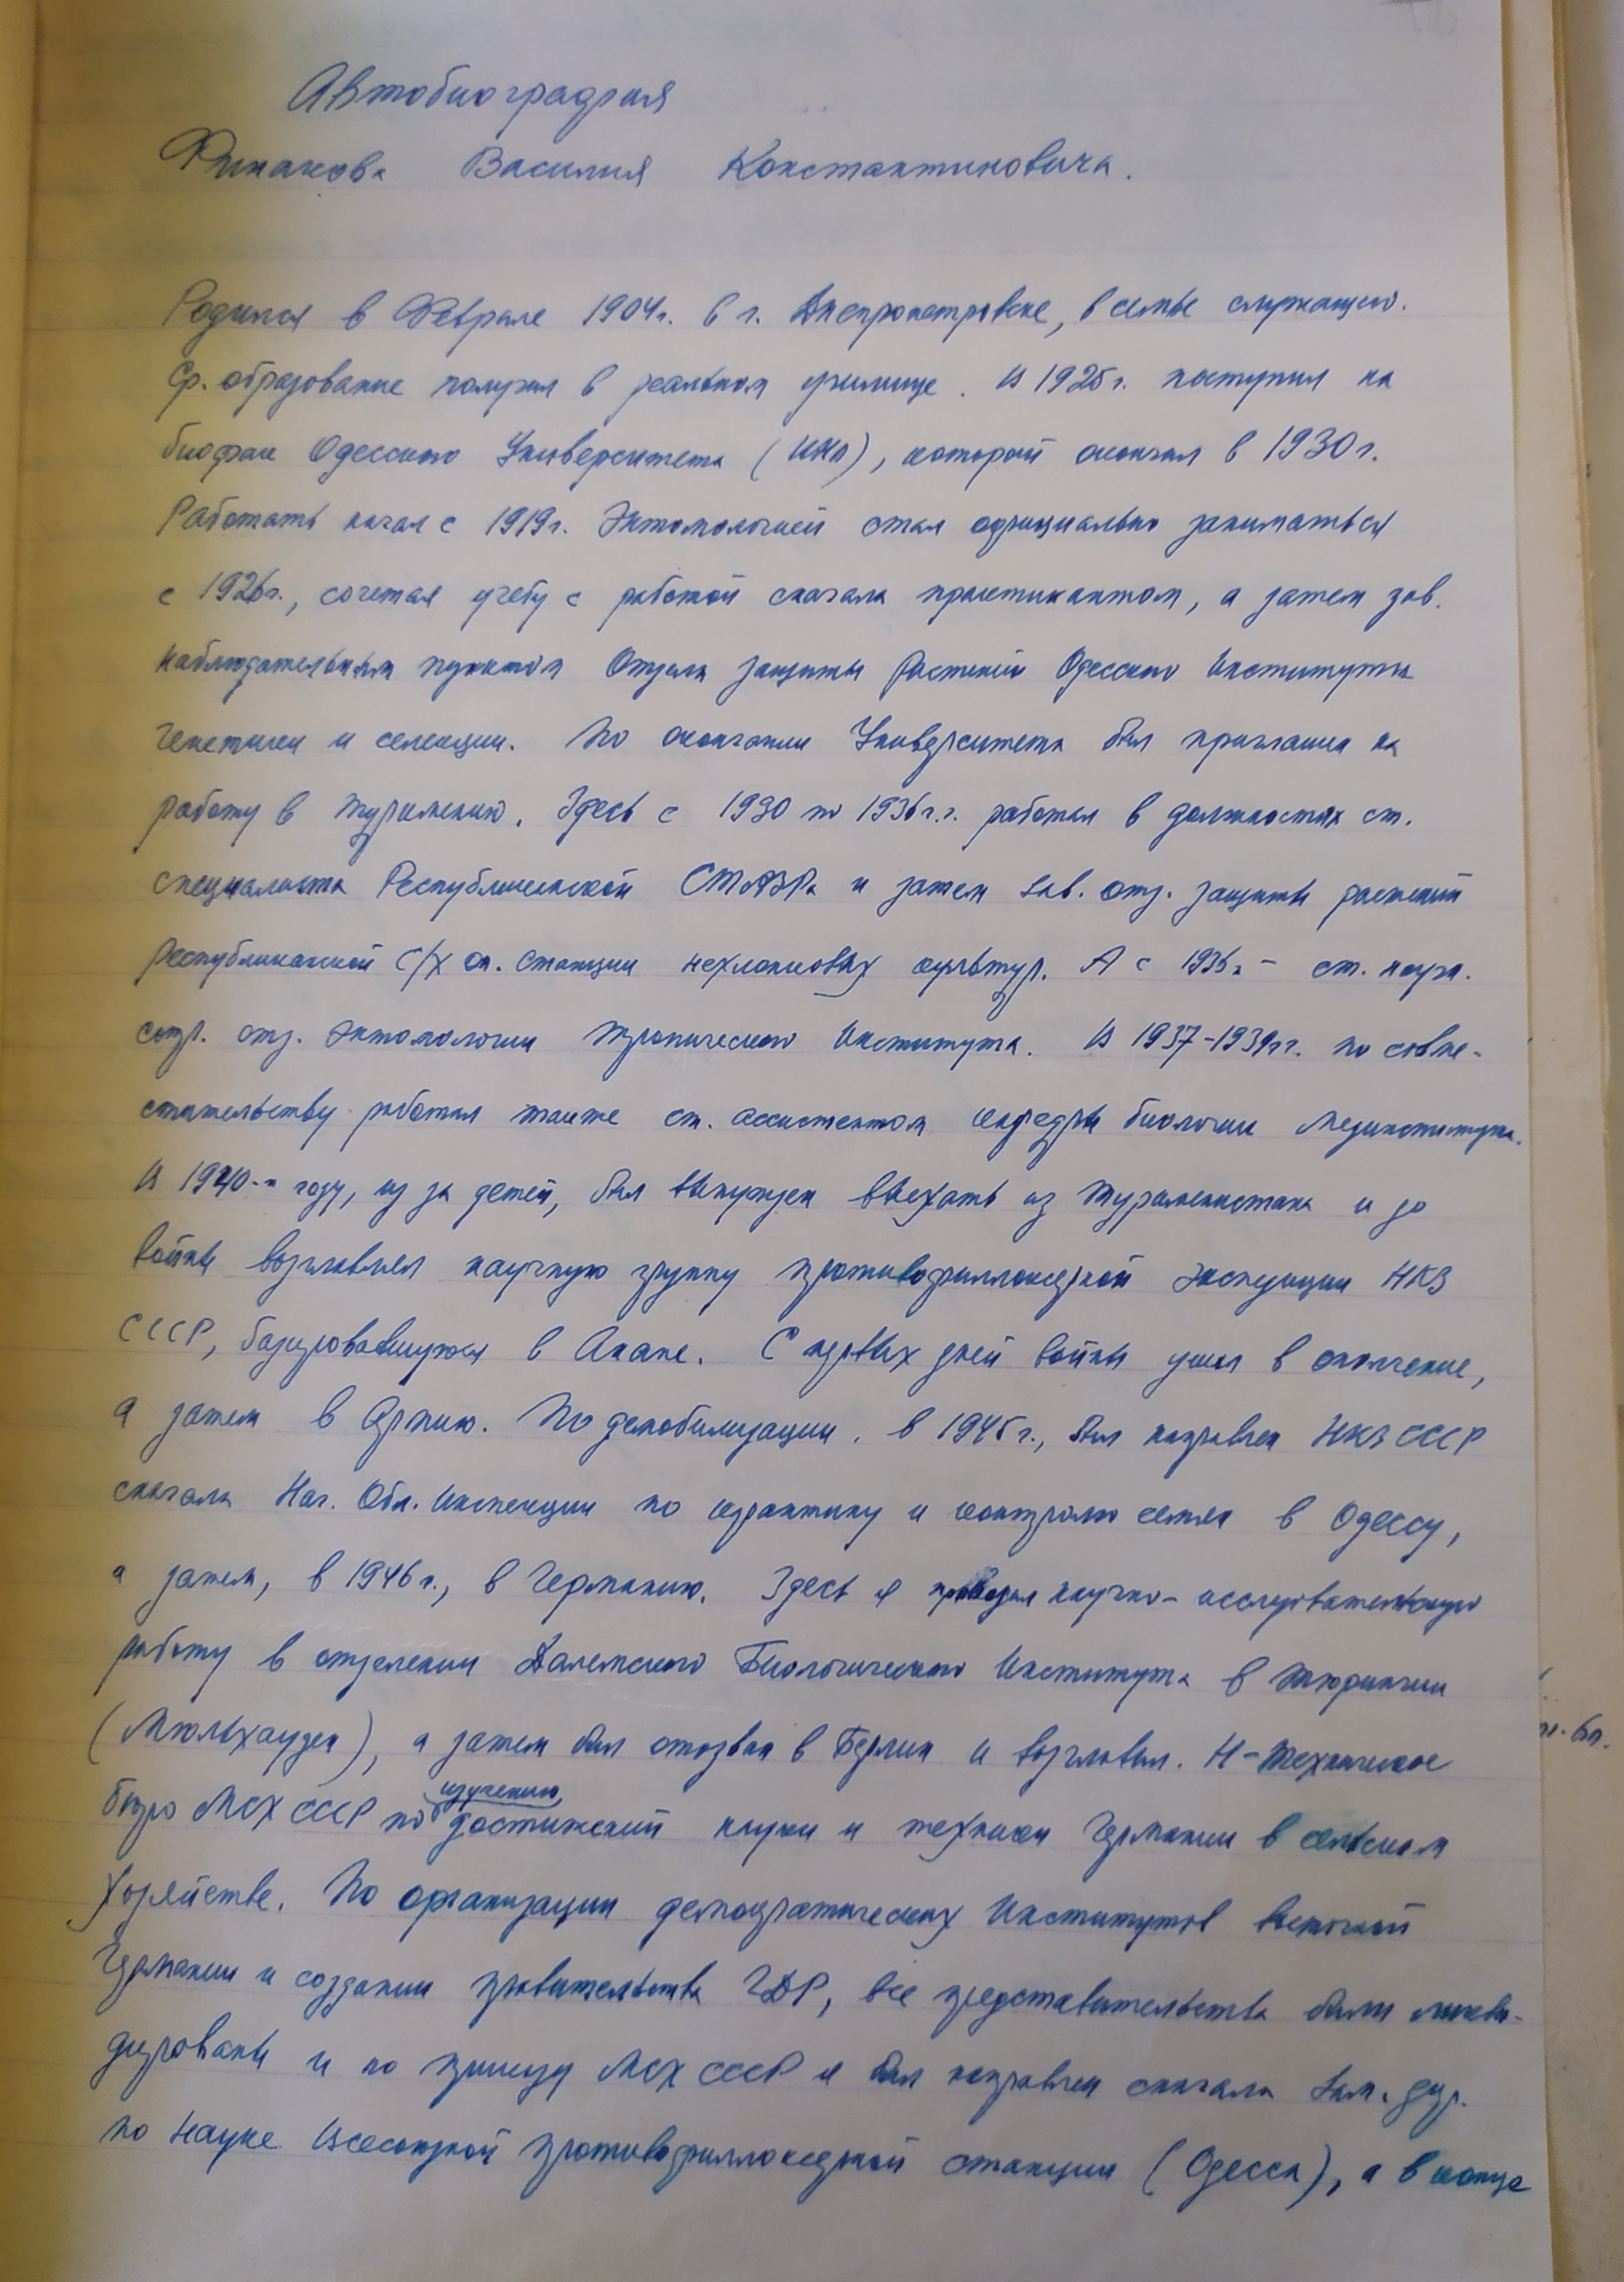 Автобиография
Финакова Василия Константиновича.
Родился в Феврале 1904г. в г. Днепропетровске, в семье служащего.
Ср. образование получил в реальном училище. В 1925г. поступил на
биофак Одесского Университета (ИНО), который окончил в 1930г.
Работать начал с 1919г. Энтомологией стал официально заниматься
с 1926г., сочетая учебу с работой сначала практикантом, а затем зав.
наблюдательным пунктом Отдела защиты растений Одесского Института
генетики и селекции. По окончании Университета был приглашен на
работу в Туркмению. Здесь с 1930 по 1936г.г. работал в должностях ст.
специалиста Республиканской СТАЗРа и затем зав. отд. защиты растений
Республиканской С/Х оп. станции нехлопковых культур. А с 1936г. - ст. научн.
сотр. отд. энтомологии Тропического Института. В 1937-1939гг. по совме-
стительству работал также ст. ассистентом кафедры биологии Мединститута.
В 1940-м году, из за детей, был вынужден выехать из Туркменистана и до
войны возглавлял научную группу противофиллоксерной экспедиции НКЗ
СССР, базировавшуюся в Анапе. С первых дней войны ушел в ополчение,
а затем в Армию. По демобилизации, в 1945г., был направлен НКЗ СССР
сначала Нач. Обл. Инспекции по карантину и контролю семян в Одессу,
а затем, в 1946г., в Германию. Здесь я проводил научно-исследовательскую
работу в отделении Далемского Биологического Института в Тюрингии
(Мюльхаузен), а затем был отозван в Берлин и возглавил Н-Техническое
бюро МСХ СССР по изучению достижений науки и техники Германии в сельском
хозяйстве. По организации демократических Институтов восточной
Германии и создании правительства ГДР, все представительства были ликви-
дированы и по приказу МСХ СССР я был направлен сначала Зам. дир.
по науке Всесоюзной противофиллоксерной станции (Одесса), а в конце